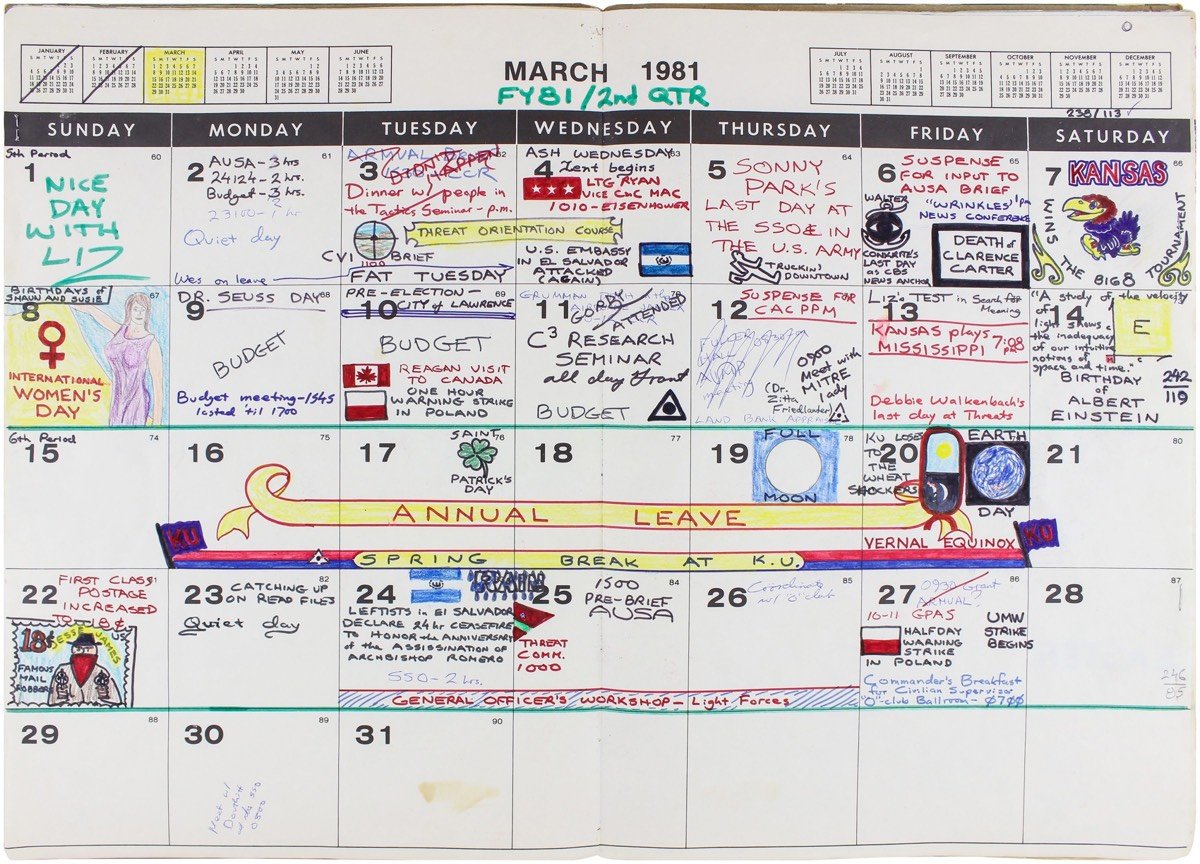 JANUARY
FEBRUARY
MARCH
APRIL
MAY
JUNE
MARCH 1981
FY81/2nd QTR
JULY
AUGUST
SEPTEMBER
OCTOBER
NOVEMBER
DECEMBER
238/113
SUNDAY MONDAY TUESDAY WEDNESDAY THURSDAY FRIDAY SATURDAY
5th Period 60
1
NICE
DAY
WITH
LIZ
61
2 AUSA-3 hrs
24124-2 hrs.
Budget-3 hrs.
23100-1 hr
Quiet day
Wes on leave
3
DIDN'T HAPPEN
Dinner w/ people in
the Tactics Seminar-p.m.
THREAT ORIENTATION COURSE
CVI BRIEF
1100
FAT TUESDAY
ASH WEDNESDAY 63
4 Lent begins
LTG RYAN
VICE CINC MAC
1010-EISENHOWER
U.S. EMBASSY
IN EL SALVADOR
ATTACKED
(AGAIN)
64
5 SONNY
PARK'S
LAST DAY AT
THE SSO & IN
THE U.S. ARMY
TRUCKIN'
DOWNTOWN
65
6 SUSPENSE
FOR INPUT TO
AUSA BRIEF
WALTER
CRONKITE'S
LAST DAY
as CBS
NEWS ANCHOR
"WRINKLES" 1pm
NEWS CONFERENCE
DEATH of
CLARENCE
CARTER
66
7 KANSAS
WINS THE BIG 8 TOURNAMENT
BIRTHDAYS of
SHAUN AND SUSIE 67
8
INTERNATIONAL
WOMEN'S
DAY
DR. SEUSS DAY 68
9
BUDGET
Budget meeting-1545
lasted 'til 1700
PRE-ELECTION- 69
10 CITY OF LAWRENCE
BUDGET
REAGAN VISIT
TO CANADA
ONE HOUR
WARNING STRIKE
IN POLAND
GRUMMAN
11 GORBY
ATTENDED
C³ RESEARCH
SEMINAR
all day Grant
BUDGET
12 SUSPENSE FOR
CAC PPM
0900
Meet with
MITRE
lady
(Dr.
Zitta
Friedlander)
LAND BANK APPRAISAL
Liz's TEST in Search for
Meaning
13
KANSAS plays 7:08
MISSISSIPPI pm
Debbie Walkenbach's
last day at Threats
"A study of the velocity
of
light shows
the inadequacy
of our intuitive
notions of
space and time."
14
E
BIRTHDAY
of
ALBERT
EINSTEIN
242
119
6th Period 74
15
75
16
76
17
SAINT
PATRICK'S
DAY
77
18
78
19
FULL
MOON
KU LOSES
TO
THE
WHEAT
SHOCKERS
20
EARTH
DAY
VERNAL EQUINOX
80
21
ANNUAL LEAVE
KU
SPRING BREAK AT K.U.
KU
22 FIRST CLASS
POSTAGE
INCREASED
TO 18¢
18¢
JESSE JAMES
US
FAMOUS
MAIL
ROBBERS
82
23 CATCHING UP
ON READ FILES
Quiet day
24
LEFTISTS in EL SALVADOR
DECLARE 24 hr CEASEFIRE
TO HONOR the ANNIVERSARY
of the ASSASSINATION OF
ARCHBISHOP ROMERO
SSO-2 hrs.
84
25 1500
PRE-BRIEF
AUSA
THREAT
COMM.
1000
85
26 Coordinate
w/ "O" club
GENERAL OFFICER'S WORKSHOP-Light Forces
86
27 0930 Grant
ARMVAL
10-11 GPAS
HALFDAY
WARNING
STRIKE
IN POLAND
UMW
STRIKE
BEGINS
Commander's Breakfast
for Civilian Supervisor
"O"-club Ballroom-0700
87
28
246
85
88
29
89
30
Meet w/
0500
90
31